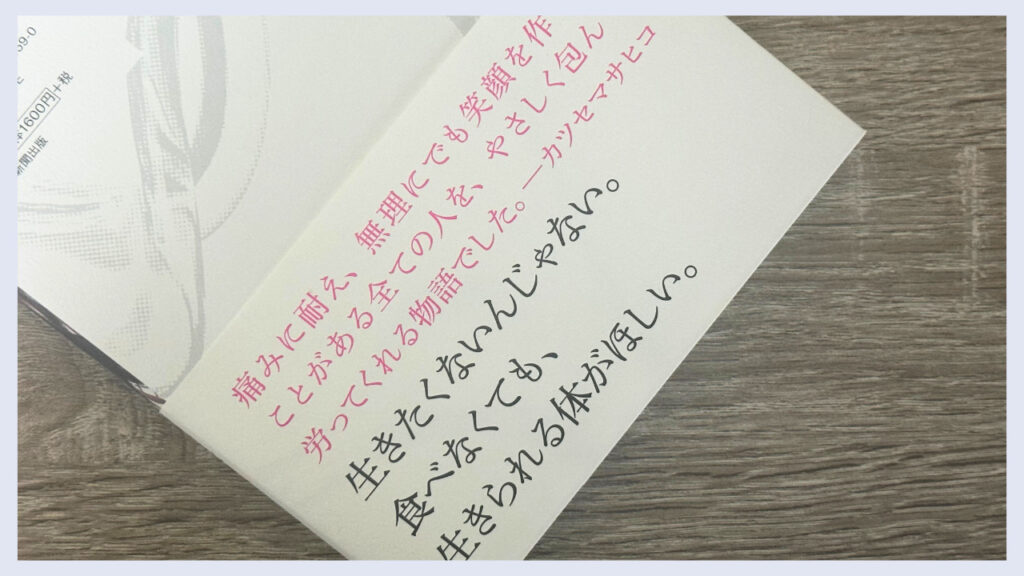 痛みに耐え、無理にでも笑顔を作
ことがある全ての人を、やさしく包ん
労ってくれる物語でした。―カツセマサヒコ
生きたくないんじゃない。
食べなくても、
生きられる体がほしい。
59-0
1600円+税
新聞出版